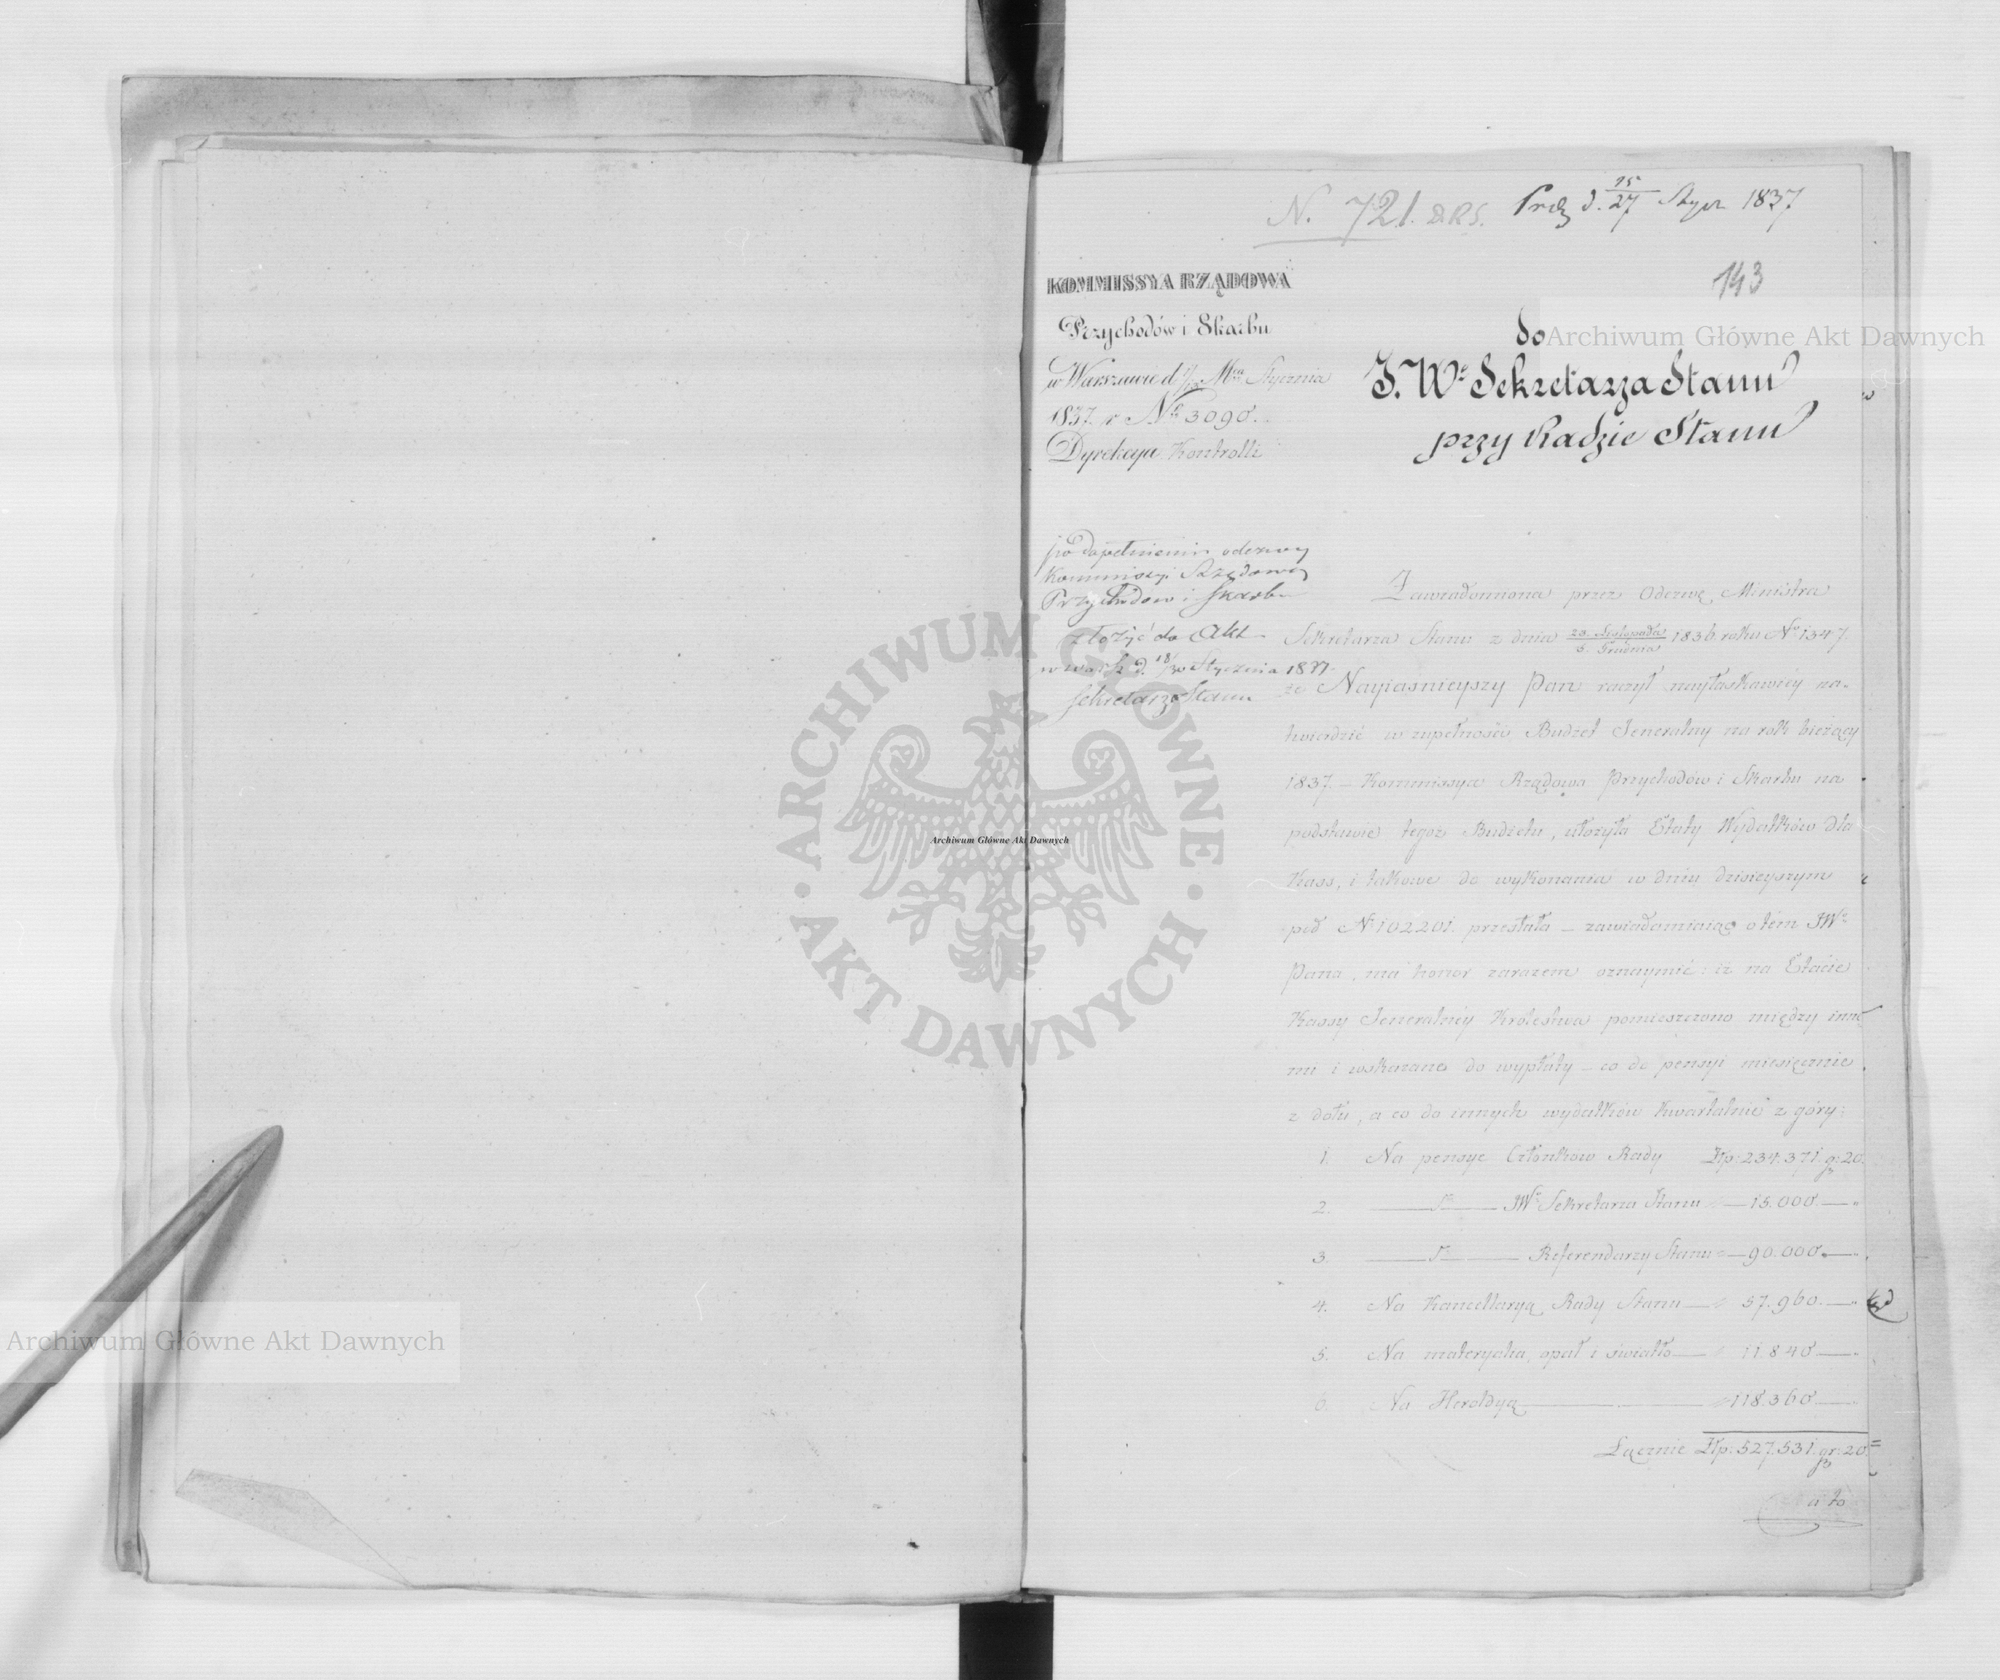 N. 721. D.R.S. Prez d. 15/27 Stycz 1837
143
KOMMISSYA RZĄDOWA
Przychodów i Skarbu
w Warszawie d Mca Stycznia
1837. r Nr 3090.
Dyrekcya Kontrolli
do
J. We Sekretarza Stanu
przy Radzie Stanu
po dopełnieniu odezwy
Kommissyi Rządowey
Przychodow i Skarbu
złożyć do Akt
w Warsz d. 18/30 Stycznia 1837.
Sekretarz Stanu
Zawiadomiona przez Odezwę Ministra
Sekretarza Stanu z dnia 23. Listopada / 5. Grudnia 1836 roku No 1347
że Nayiaśnieyszy Pan raczył nayłaskawiey za-
twierdzić w zupełności Budżet Jeneralny na rok bieżący
1837. — Kommissya Rządowa Przychodów i Skarbu na
podstawie tegoż Budżetu, ułożyła Etaty Wydatków dla
Kass, i takowe do wykonania w dniu dzisieyszym
pod No 102201. przesłała — zawiadamiaiąc o tém JWo
Pana, ma honor zarazem oznaymić: iż na Etacie
Kassy Jeneralnéy Królestwa pomieszczono między inné
mi i wskazano do wypłaty — co do pensyi miesięcznie
z dołu, a co do innych wydatków kwartalnie z góry:
1. Na pensye Członków Rady Złp: 234.371. gr: 20.
2. — dt — JWo Sekretarza Stanu — 15.000. — "
3. — dt — Referendarzy Stanu — 90.000. — "
4. Na Kancellaryą Rady Stanu — " 57.960. — "
5. Na materyalia, opał i światło — " 11.840 — "
6. Na Heroldyą — " 118.360 — "
Łącznie Złp: 527.531. gr: 20
a to
Archiwum Główne Akt Dawnych
Archiwum Główne Akt Dawnych
Archiwum Główne Akt Dawnych
ARCHIWUM GŁÓWNE AKT DAWNYCH